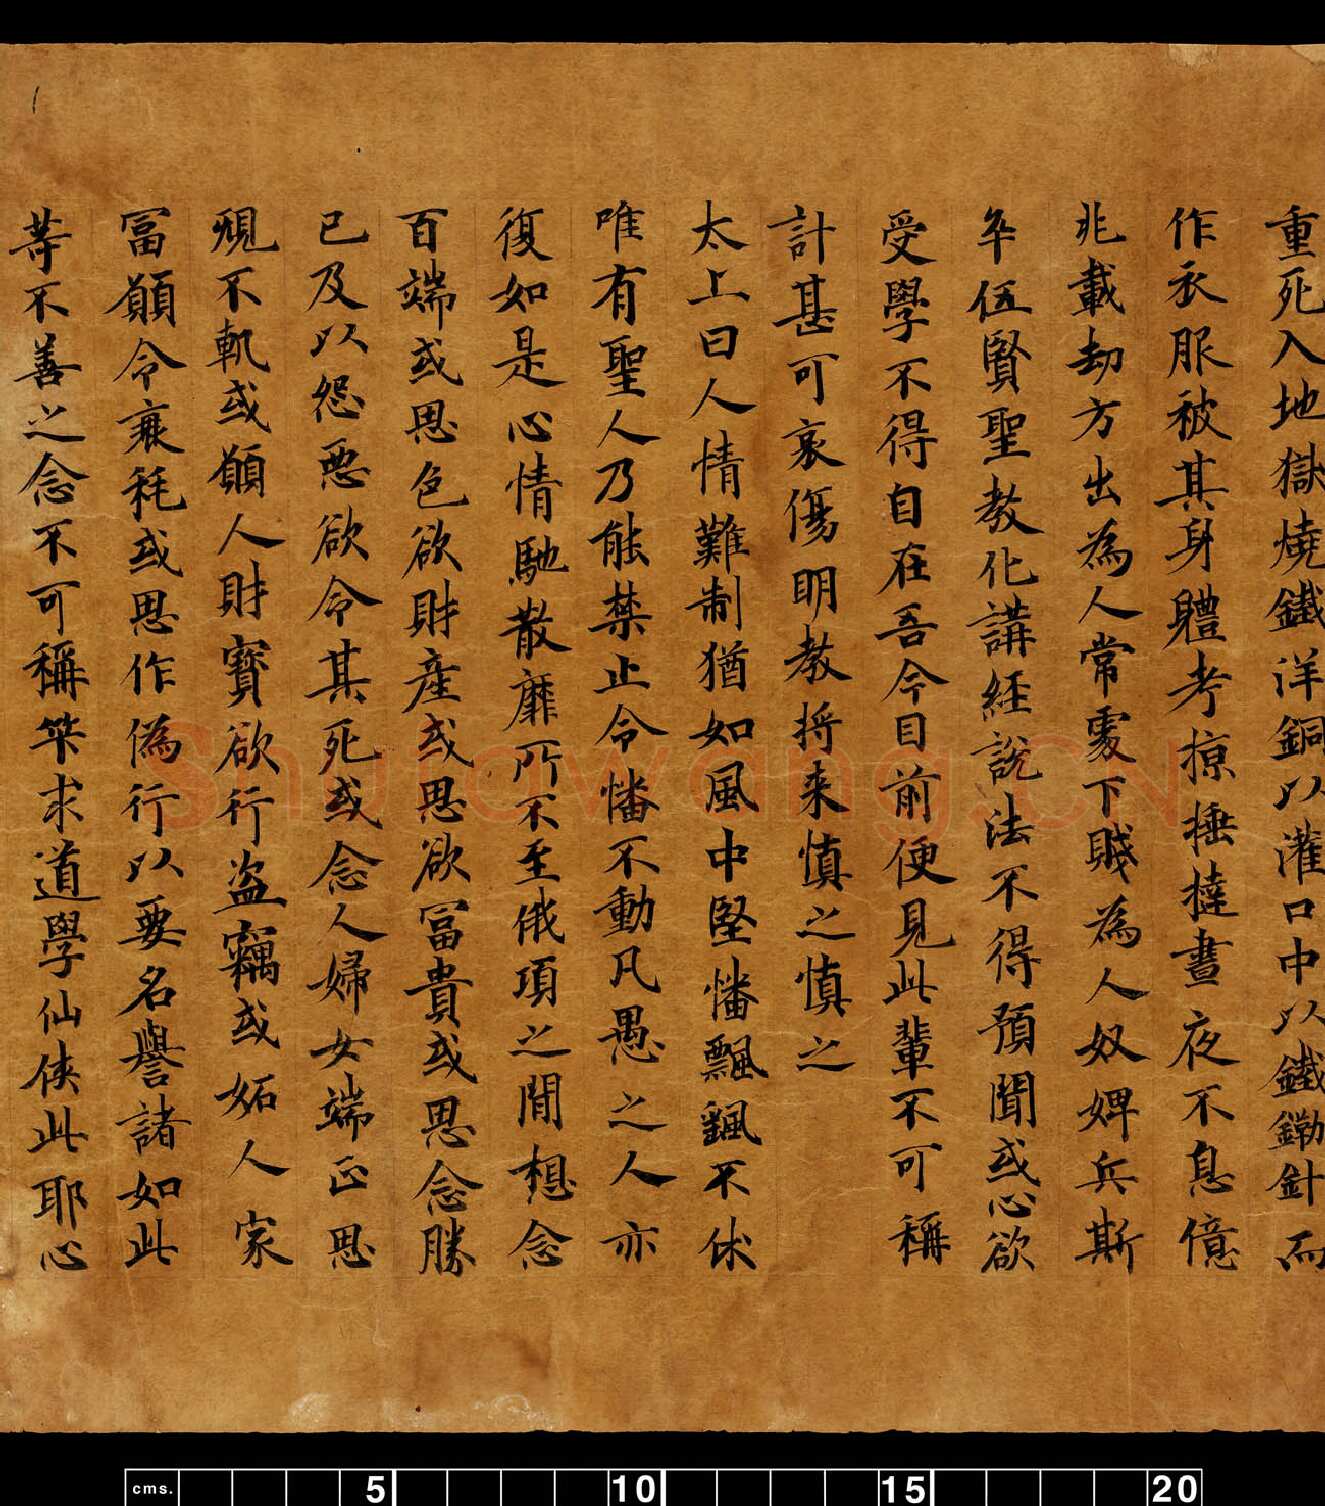 重死入地獄燒鐵洋銅以灌口中以鐵鏘針而
作衣服被其身體考掠捶撻晝夜不息億
兆載劫方出為人常處下賤為人奴婢兵斯
卒伍賢聖教化講經說法不得預聞或心欲
受學不得自在吾今目前便見此輩不可稱
計甚可哀傷明教將來慎之慎之
太上曰人情難制猶如風中堅幡飄颻不休
唯有聖人乃能禁止令幡不動凡愚之人亦
復如是心情馳散靡所不至俄項之間想念
百端或思色欲財產或思欲冨貴或思念勝
已及以怨惡欲令其死或念人婦女端正思
覩不軌或願人財寶欲行盜竊或妬人家
冨願令衰耗或思作偽行以要名譽諸如此
等不善之念不可稱筭求道學仙俠此耶心
cms. 5 10 15 20
Shufawang.CN